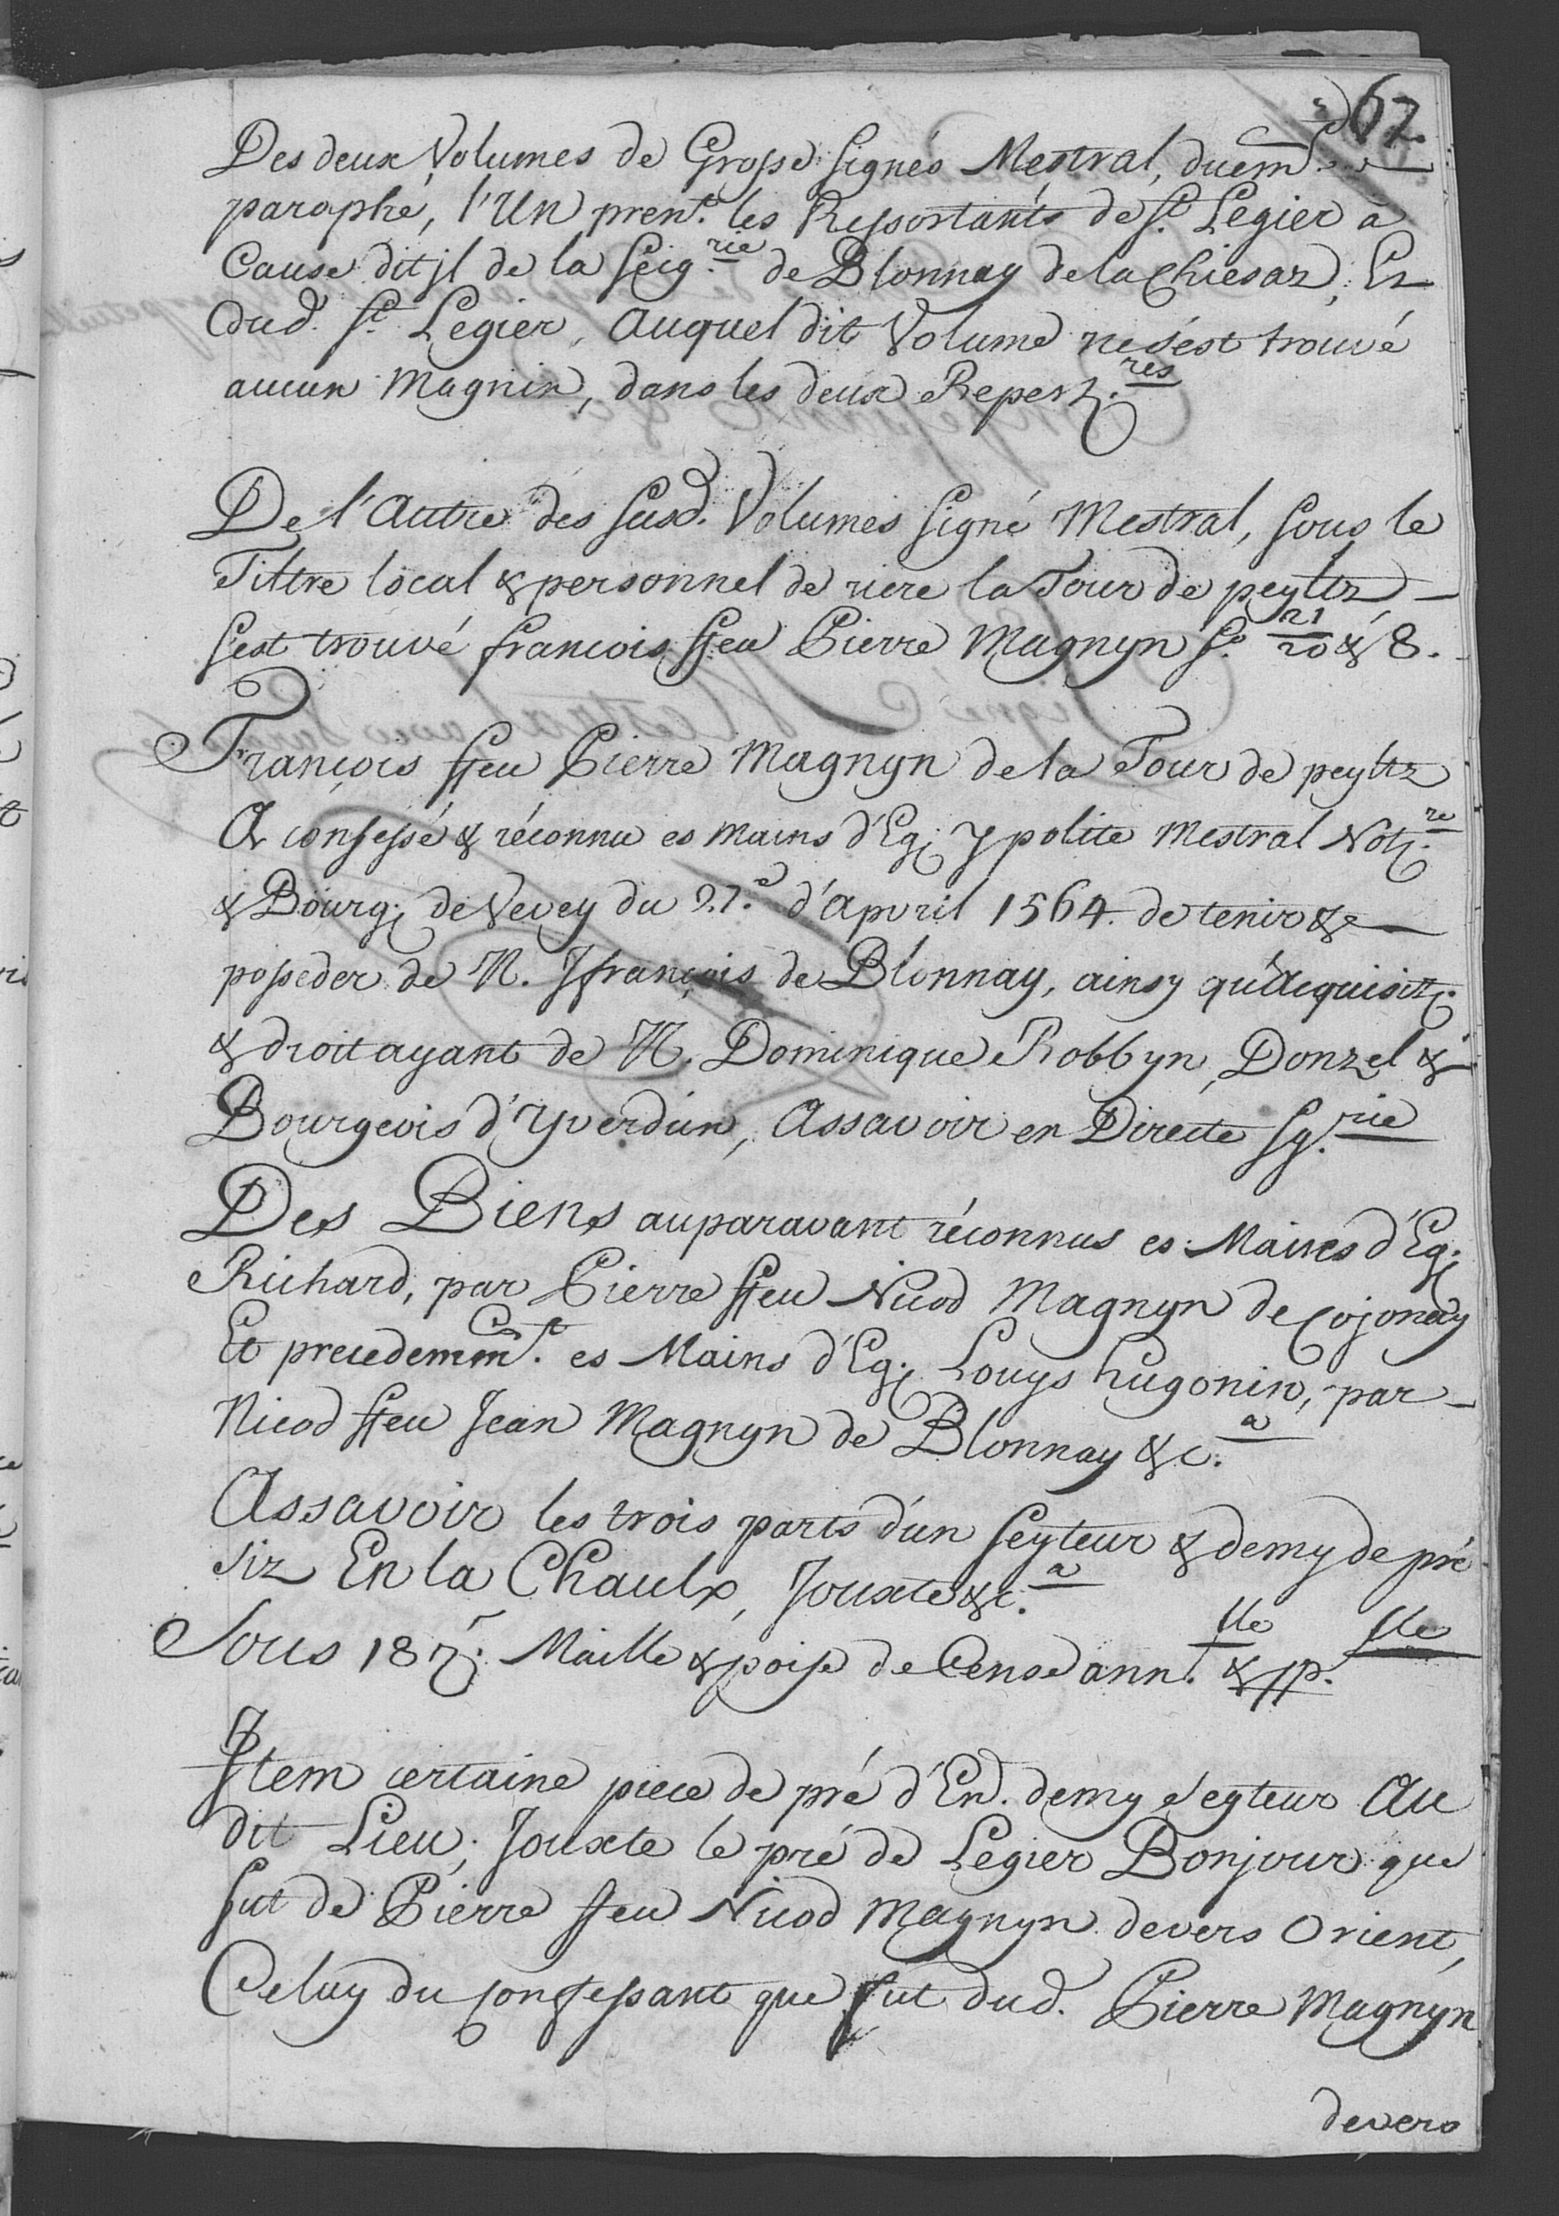 62.
Des deux Volumes de Grosse signés Mestral, duem.t
paraphé, l'Un pren.t les Ressortants de S.t Legier à
Cause dit jl de la Seig.rie de Blonnay de la Chiesaz, Et
dud. S.t Legier, Auquel dit Volume ne s'est trouvé
aucun Magnin, dans les deux Repert.res
De l'Autre des susd. Volumes signé Mestral, sous le
Tiltre local & personnel de riere la Tour de peyltz
s'est trouvé francois ffeu Pierre Magnyn f.o 21 20 & 8.
François ffeu Pierre Magnyn de la Tour de peyltz
A confessé & réconnu es mains d'Eg. Ypolite Mestral Not.re
& Bourg. de Vevey du 27.e d'Apvril 1564. de tenir &
posseder de N. Jfrançois de Blonnay, ainsy qu'Acquisit.
& droit ayant de N. Dominique Robbyn, Donzel &
Bourgeois d'Yverdun, Assavoir en Directe Sg.rie
Des Biens auparavant réconnus es Mains d'Eg.
Richard, par Pierre ffeu Nicod Magnyn de Cojonay
Et precedemm.t es Mains d'Eg. Louys hugonin, par
Nicod ffeu Jean Magnyn de Blonnay &c.a
Assavoir les trois parts d'un seyteur & demy de pré
siz En la Chaulx, Jouxte &c.a
Sous 18 Maille & poise de Cense ann.lle & pp.lle
Jtem certaine piece de pré d'En. demy seyteur Au
dit Lieu, Jouxte le pré de Legier Bonjour que
fut de Pierre ffeu Nicod Magnyn devers Orient,
Celuy du confessant que fut dud. Pierre Magnyn
devers